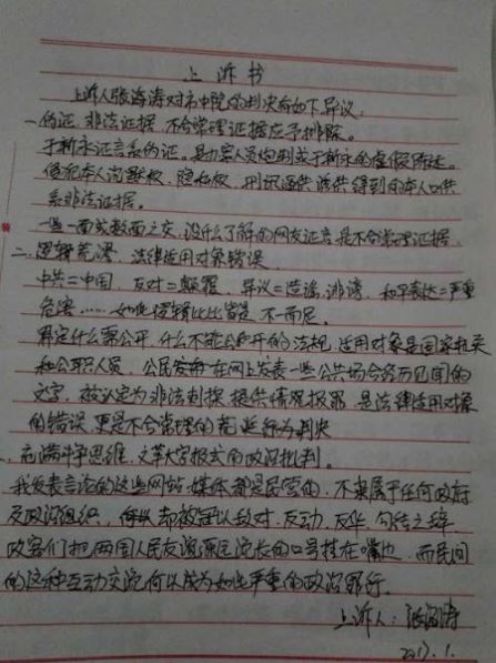 上诉书
上诉人张海涛对市中院的判决有如下异议:
一.伪证、非法证据、不合常理证据应予排除。
于新永证言系伪证。是办案人员炮制或于新永的虚假陈述。
侵犯本人沉默权、隐私权、刑讯逼供诱供得到的本人口供
系非法证据。
一些一面或数面之交、没什么了解的网友证言是不合常理证据.
二.逻辑荒谬、法律适用对象错误
中共=中国、反对=颠覆、异议=造谣、诽谤、和平表达=严重
危害……如此逻辑比比皆是、不一而足.
界定什么需公开、什么不能公开的法规、适用对象是国家机关
和公职人员、公民在网上发表一些公共场合务所见闻的
文字、被认定为非法刺探、提供情报报罪、是法律适用对象
的错误、更是不合常理的荒诞行为判决
、充满斗争思维、文革大字报式的政治批判。
我发表言论的这些网站、媒体都是民营的、不隶属于任何政府
及政治组织、何以却被冠以敌对、反动、反华、勾结之辞
政客们把两国人民友谊源远流长的口号挂在嘴边、而民间
的这种互动交流何以成为如此严重的政治罪行.
上诉人:张海涛
2017.1.